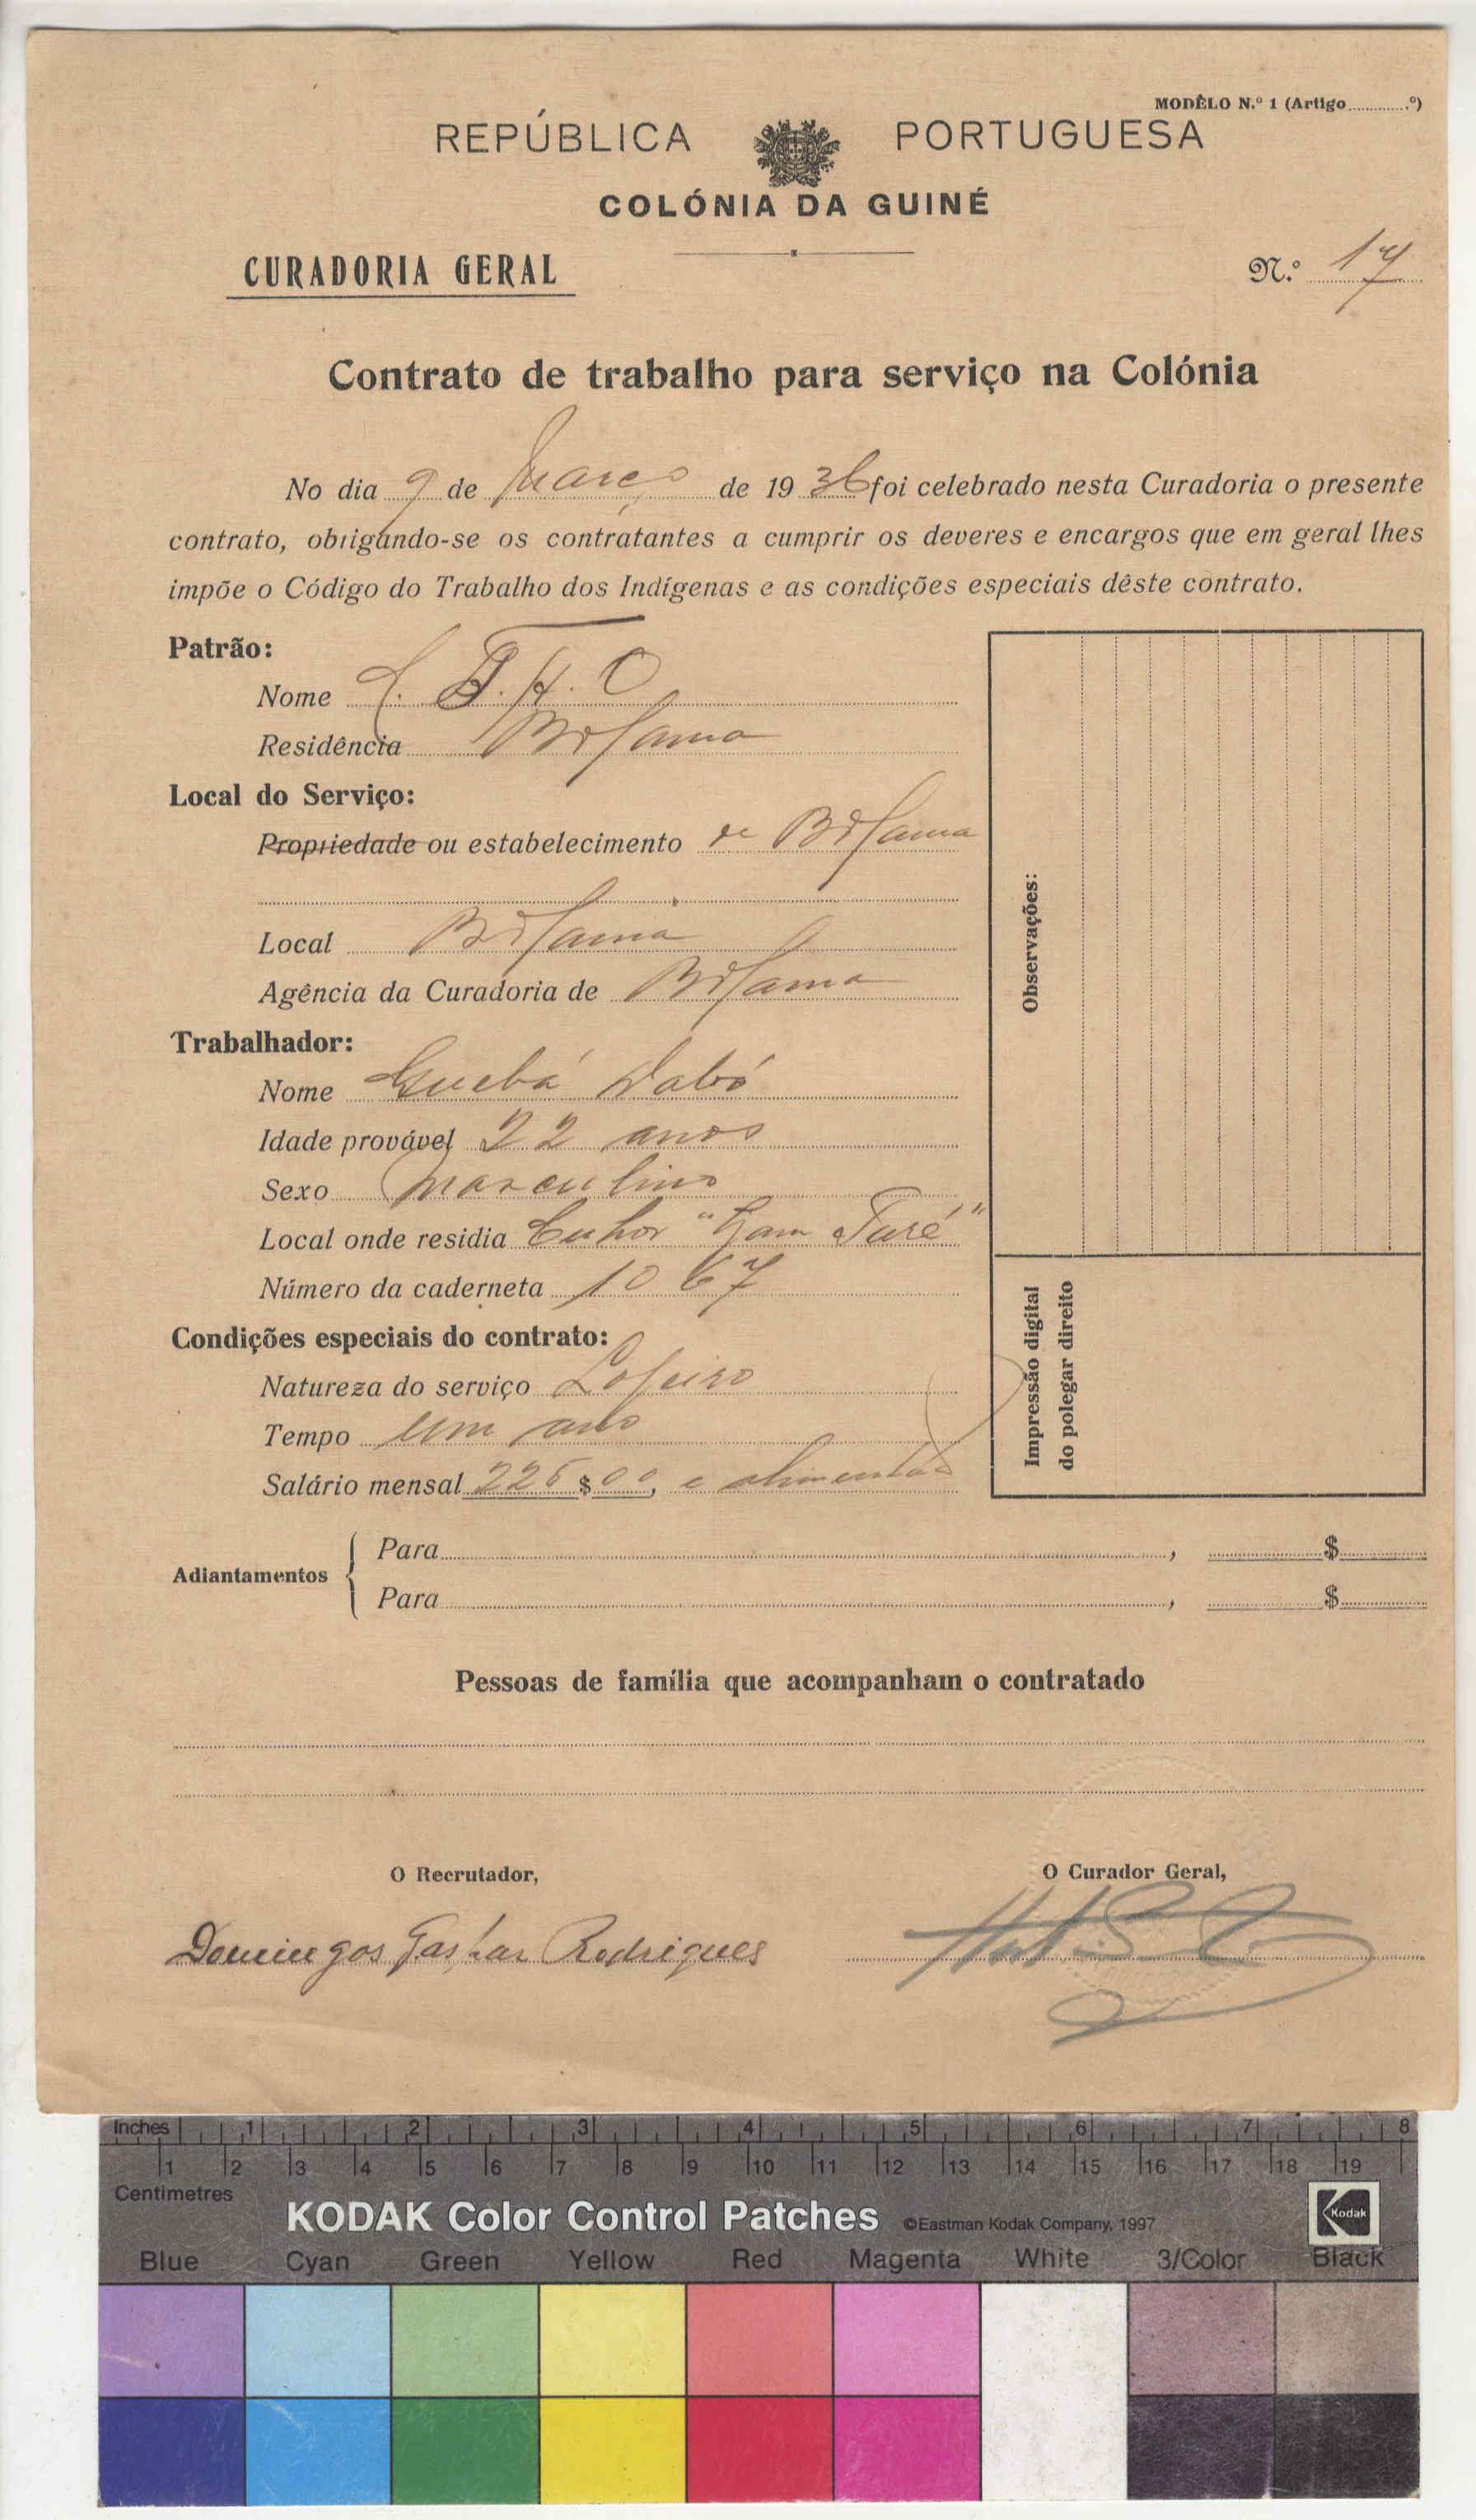 MODÊLO N.º 1 (Artigo .............º)
REPÚBLICA PORTUGUESA
COLÓNIA DA GUINÉ
CURADORIA GERAL
N.º 17
Contrato de trabalho para serviço na Colónia
No dia 9 de Março de 1936 foi celebrado nesta Curadoria o presente
contrato, obrigando-se os contratantes a cumprir os deveres e encargos que em geral lhes
impõe o Código do Trabalho dos Indígenas e as condições especiais dêste contrato.
Patrão:
Nome
Residência Bolama
Local do Serviço:
Propriedade ou estabelecimento de Bolama
Local Bolama
Agência da Curadoria de Bolama
Trabalhador:
Nome Dabó
Idade provável 22 anos
Sexo Masculino
Local onde residia "Gam Turé"
Número da caderneta 1067
Condições especiais do contrato:
Natureza do serviço
Tempo um ano
Salário mensal 225$00, e alimentação
Observações:
Impressão digital
do polegar direito
Adiantamentos
Para , $
Para , $
Pessoas de família que acompanham o contratado
O Recrutador,
O Curador Geral,
Domingos Gaspar Rodrigues
Inches 1 2 3 4 5 6 7 8
1 2 3 4 5 6 7 8 9 10 11 12 13 14 15 16 17 18 19
Centimetres
KODAK Color Control Patches ©Eastman Kodak Company, 1997 Kodak
Blue Cyan Green Yellow Red Magenta White 3/Color Black